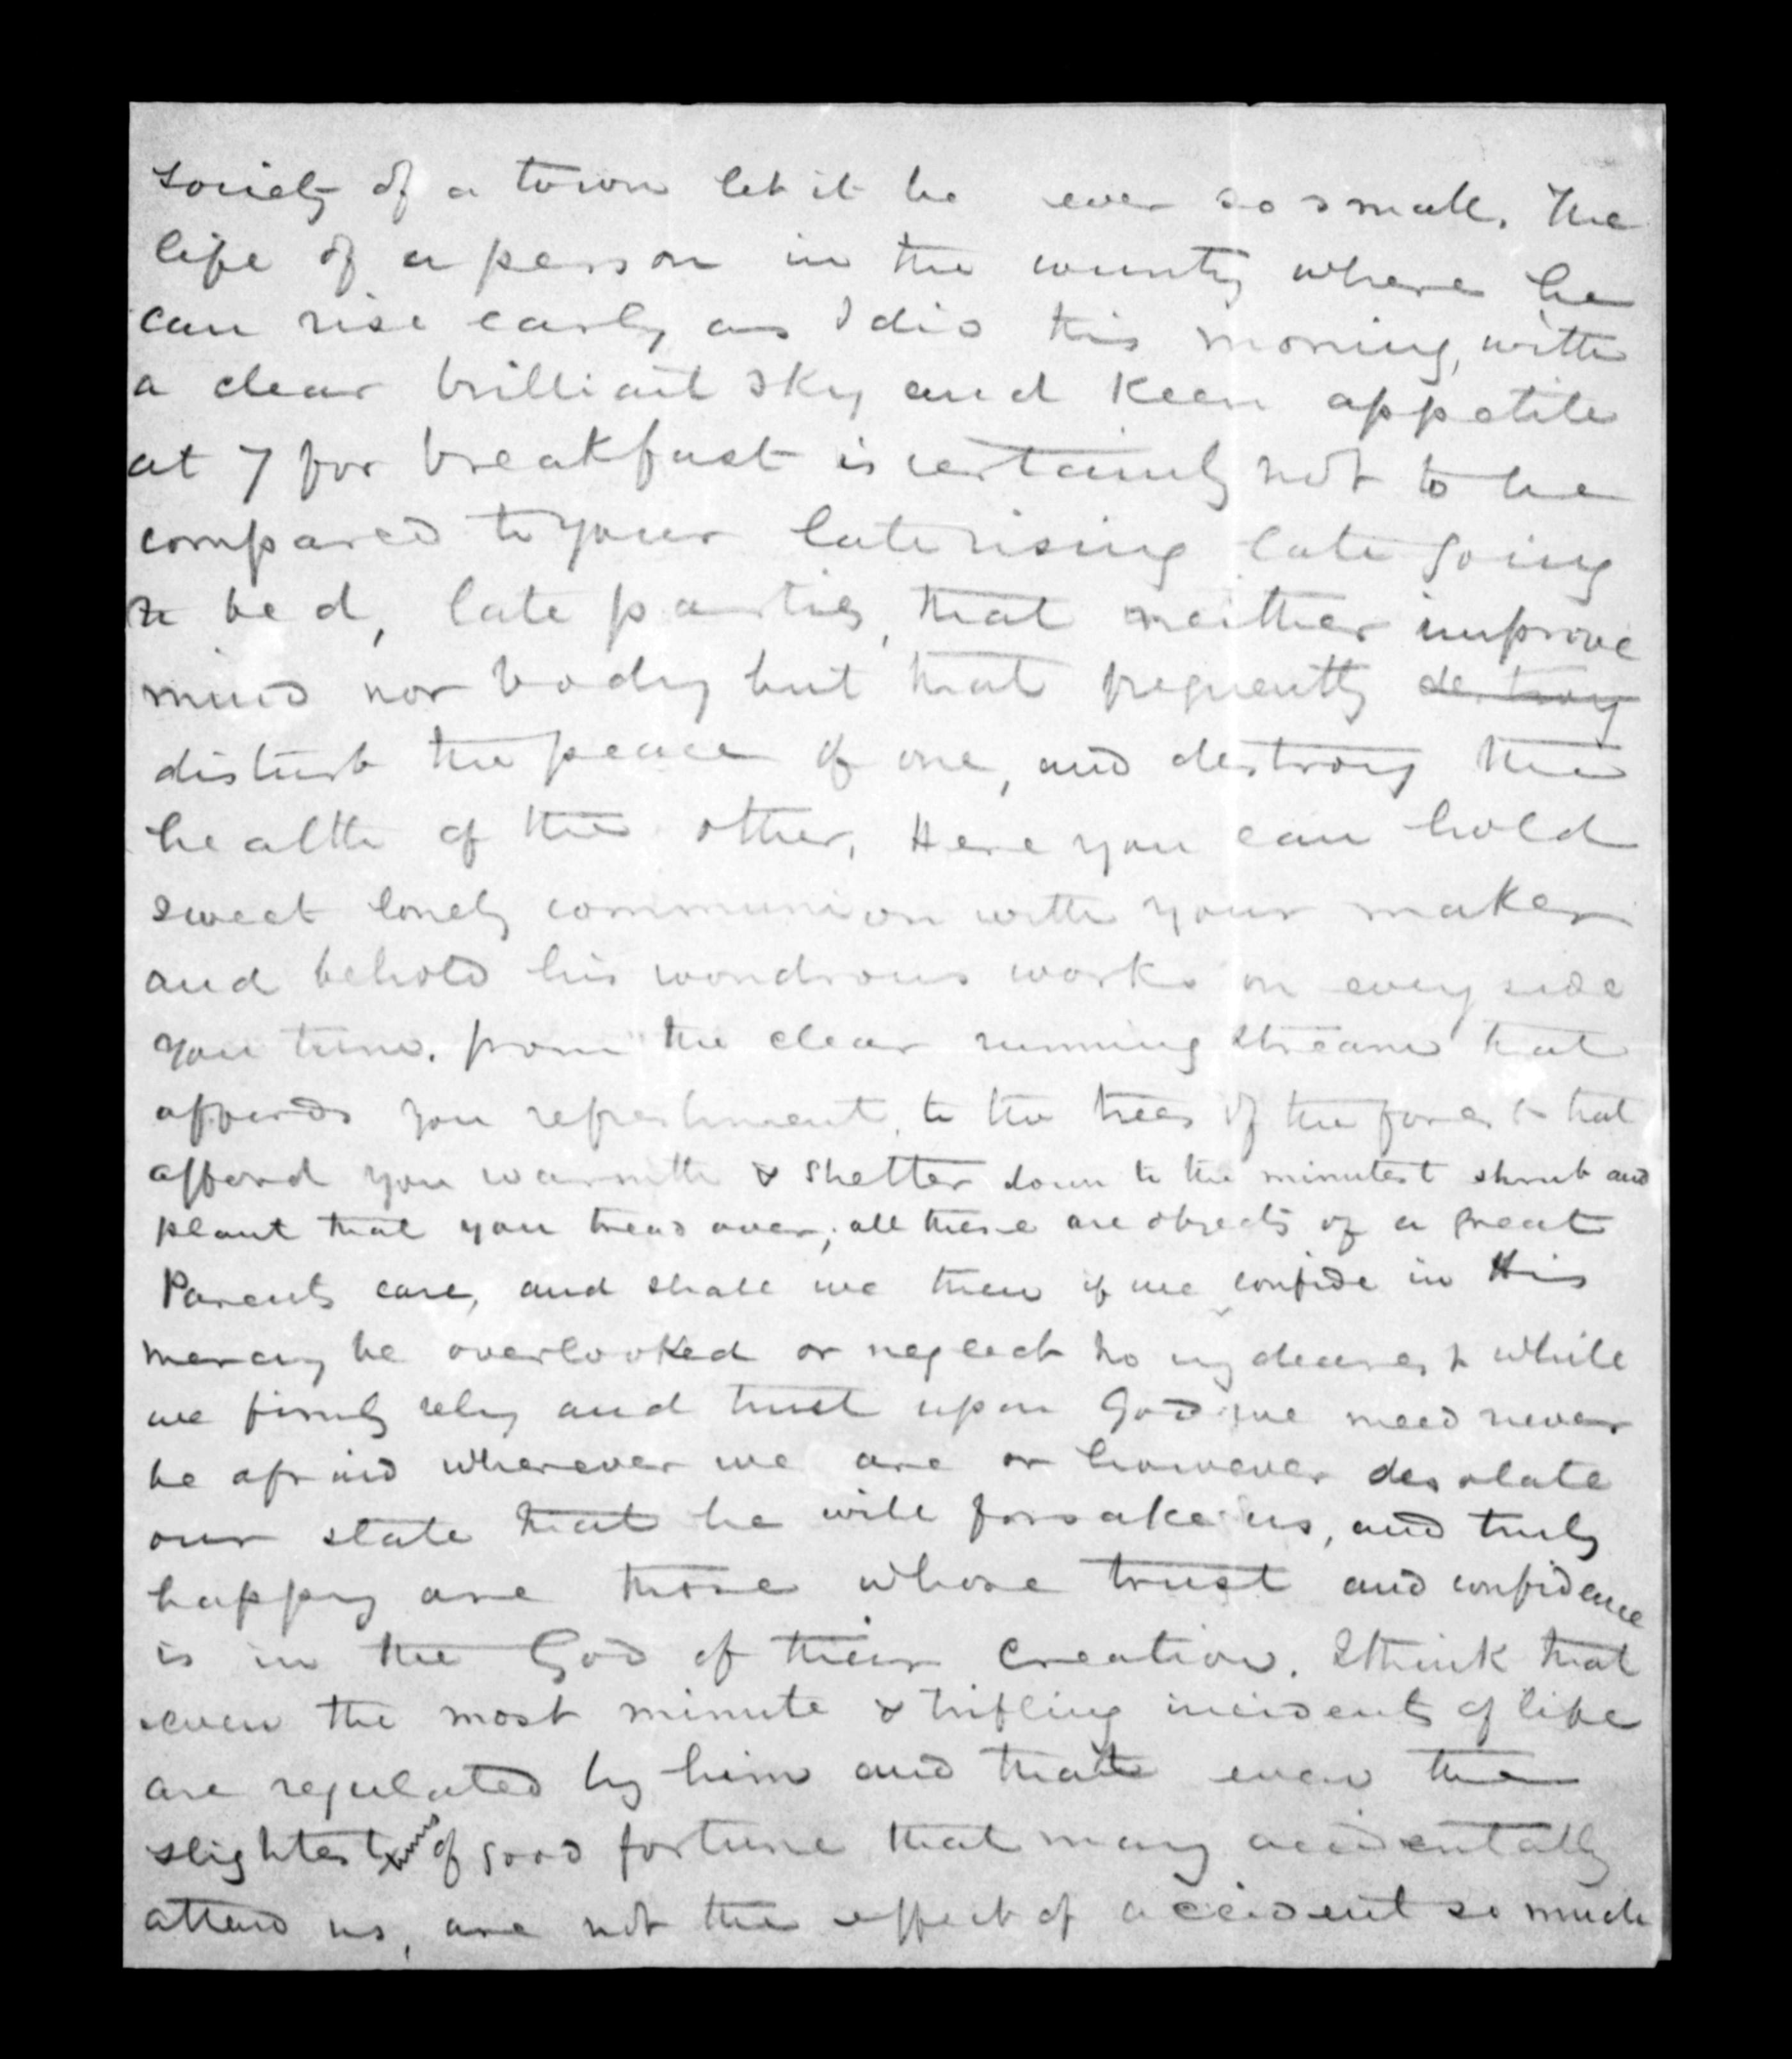 society of a town let it be ever so small. The
life of a person in the country where he
can rise early as I did this morning, with
a clear brilliant sky and keen appetite
at 7 for breakfast is certainly not to be
compared to your late rising late going
to bed, late parties, that neither improve
mind nor body but that frequently destroy
disturb the peace of one, and destroy the
health of the other. Here you can hold
sweet lonely communion with your maker
and behold his wondrous works on every side
you turn. from the clear running stream that
affords you refreshment, to the trees of the forest that
afford you warmth & shelter down to the minutest shrub and
plant that you tread over; all these are objects of a great
Parents care, and shall we then if we confide in His
mercy be overlooked or neglect no my dearest while
we firmly rely and trust upon God we need never
be afraid wherever we are or however desolate
our state that he will forsake us, and truly
happy are those whose trust and confidence
is in the God of their Creation. I think that
even the most minute & trifling incidents of life
are regulated by him and that even the
slightest turns of good fortune that may accidentally
attend us, are not the effect of accident so much